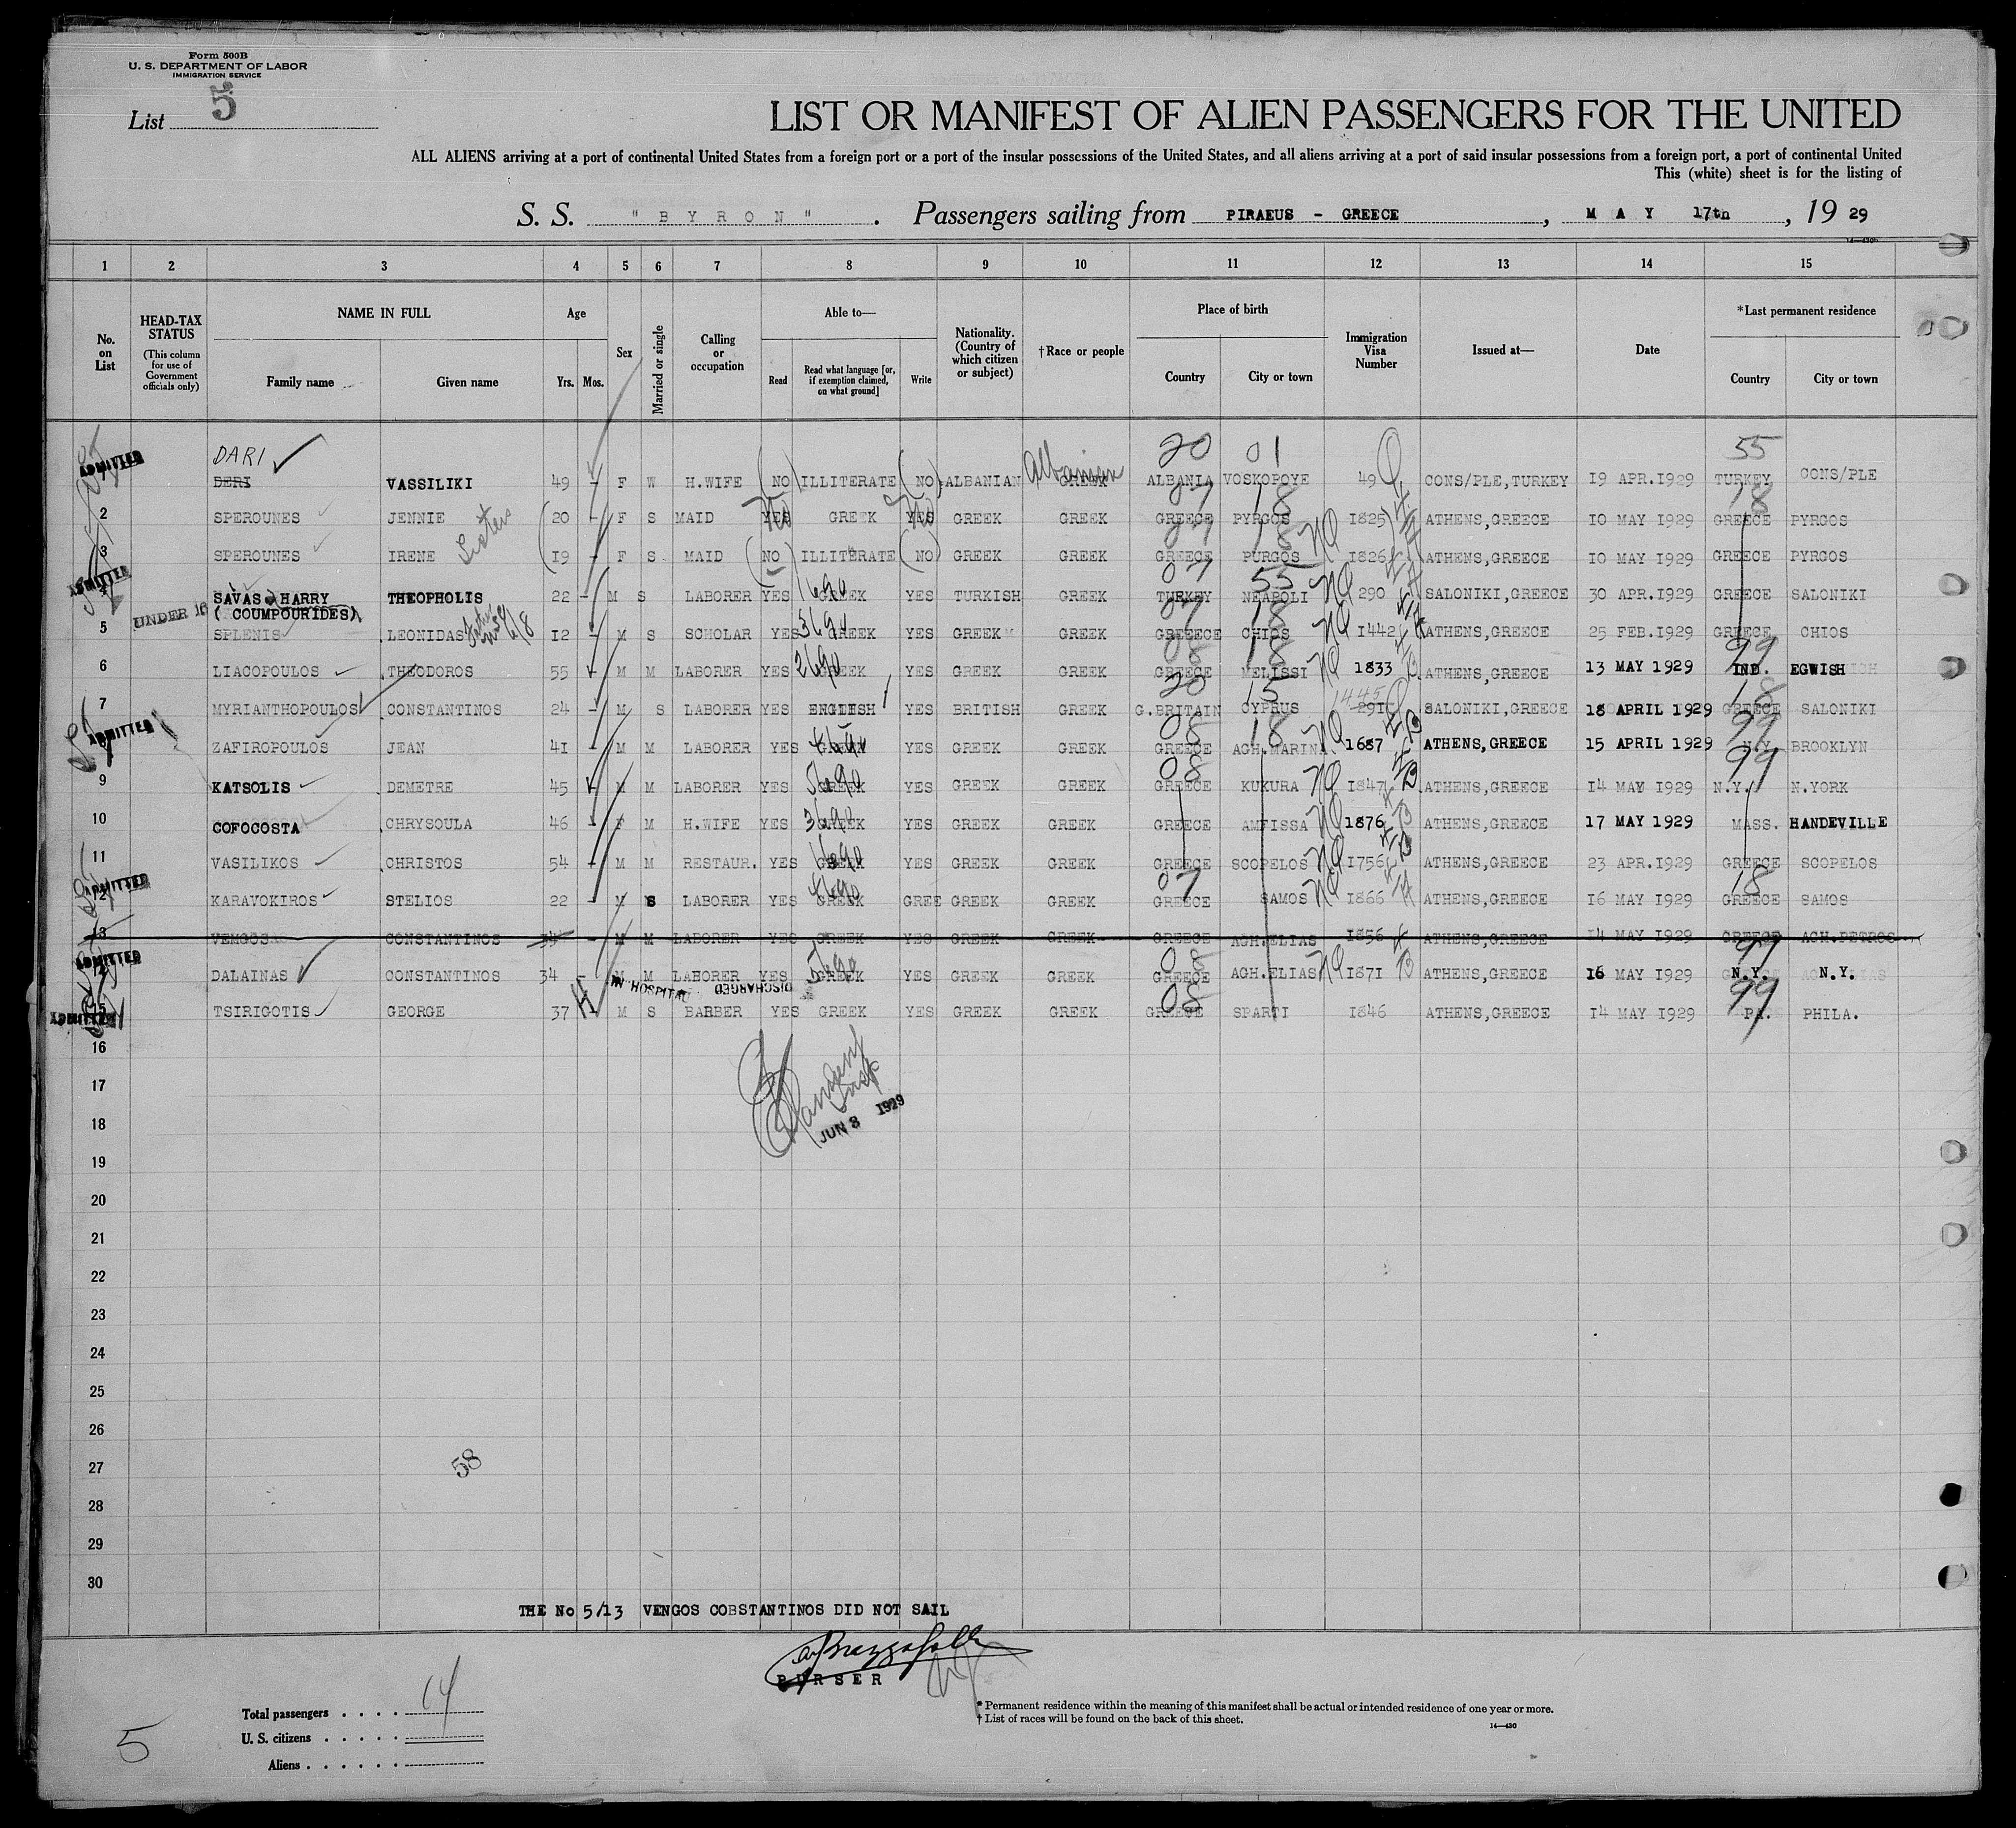 Form 500B
U. S. DEPARTMENT OF LABOR
IMMIGRATION SERVICE
List 5
LIST OR MANIFEST OF ALIEN PASSENGERS FOR THE UNITED
ALL ALIENS arriving at a port of continental United States from a foreign port or a port of the insular possessions of the United States, and all aliens arriving at a port of said insular possessions from a foreign port, a port of continental United
This (white) sheet is for the listing of
S. S. "BYRON". Passengers sailing from PIRAEUS - GREECE, MAY 17th, 19 29
1 2 3 4 5 6 7 8 9 10 11 12 13 14 15
No. on List
HEAD-TAX STATUS (This column for use of Government officials only)
NAME IN FULL Family name Given name
Age Yrs. Mos.
Sex
Married or single
Calling or occupation
Able to— Read Read what language [or, if exemption claimed, on what ground] Write
Nationality. (Country of which citizen or subject)
†Race or people
Place of birth Country City or town
Immigration Visa Number
Issued at—
Date
*Last permanent residence Country City or town
DARI 20 01 55
ADMITTED DERI VASSILIKI 49 - F W H.WIFE NO ILLITERATE NO ALBANIAN GREEK Albanian ALBANIA VOSKOPOYE 49 CONS/PLE,TURKEY 19 APR.1929 TURKEY CONS/PLE
2 SPEROUNES JENNIE Sisters 20 - F S MAID YES No GREEK YES No GREEK GREEK GREECE PYRGOS 1825 ATHENS,GREECE 10 MAY 1929 GREECE PYRGOS
3 SPEROUNES IRENE 19 - F S MAID NO ILLITERATE NO GREEK GREEK GREECE PURGOS 1826 ATHENS,GREECE 10 MAY 1929 GREECE PYRGOS
ADMITTED SAVAS HARRY THEOPHOLIS 22 - M S LABORER YES GREEK YES TURKISH GREEK TURKEY NEAPOLI 290 SALONIKI,GREECE 30 APR.1929 GREECE SALONIKI
UNDER 16 (COUMPOURIDES)
5 SPLENIS LEONIDAS 12 - M S SCHOLAR YES GREEK YES GREEK GREEK GREEECE CHIOS 1442 ATHENS,GREECE 25 FEB.1929 GREECE CHIOS
6 LIACOPOULOS THEODOROS 55 M M LABORER YES GREEK YES GREEK GREEK GREECE MELISSI 1833 ATHENS,GREECE 13 MAY 1929 IND. EGWISH
7 MYRIANTHOPOULOS CONSTANTINOS 24 - M S LABORER YES ENGLISH YES BRITISH GREEK G.BRITAIN CYPRUS 291 1445 SALONIKI,GREECE 18 APRIL 1929 GREECE SALONIKI
ADMITTED ZAFIROPOULOS JEAN 41 - M M LABORER YES GREEK YES GREEK GREEK GREECE AGH.MARINA 1687 ATHENS,GREECE 15 APRIL 1929 N.Y. BROOKLYN
9 KATSOLIS DEMETRE 45 M M LABORER YES GREEK YES GREEK GREEK GREECE KUKURA 1847 ATHENS,GREECE 14 MAY 1929 N.Y. N.YORK
10 COFOCOSTA CHRYSOULA 46 - F M H.WIFE YES GREEK YES GREEK GREEK GREECE AMFISSA 1876 ATHENS,GREECE 17 MAY 1929 MASS. HANDEVILLE
11 VASILIKOS CHRISTOS 54 - M M RESTAUR. YES GREEK YES GREEK GREEK GREECE SCOPELOS 1756 ATHENS,GREECE 23 APR.1929 GREECE SCOPELOS
ADMITTED 12 KARAVOKIROS STELIOS 22 - M S LABORER YES GREEK GREE GREEK GREEK GREECE SAMOS 1866 ATHENS,GREECE 16 MAY 1929 GREECE SAMOS
13 VENGOS CONSTANTINOS 34 - M M LABORER YES GREEK YES GREEK GREEK GREECE AGH.ELIAS 1856 ATHENS,GREECE 14 MAY 1929 GREECE AGH.PETROS
ADMITTED DALAINAS CONSTANTINOS 34 - M M LABORER YES GREEK YES GREEK GREEK GREECE AGH.ELIAS 1871 ATHENS,GREECE 16 MAY 1929 N.Y. N.Y.
IN HOSPITAL DISCHARGED
ADMITTED 15 TSIRIGOTIS GEORGE 37 M S BARBER YES GREEK YES GREEK GREEK GREECE SPARTI 1846 ATHENS,GREECE 14 MAY 1929 PA. PHILA.
16
17
JUN 8 1929
18
19
20
21
22
23
24
25
26
27
58
28
29
30
THE No 5/13 VENGOS COBSTANTINOS DID NOT SAIL
PURSER
Total passengers . . . . 14
U. S. citizens . . . . .
Aliens . . . . . .
5
* Permanent residence within the meaning of this manifest shall be actual or intended residence of one year or more.
† List of races will be found on the back of this sheet.
14—430